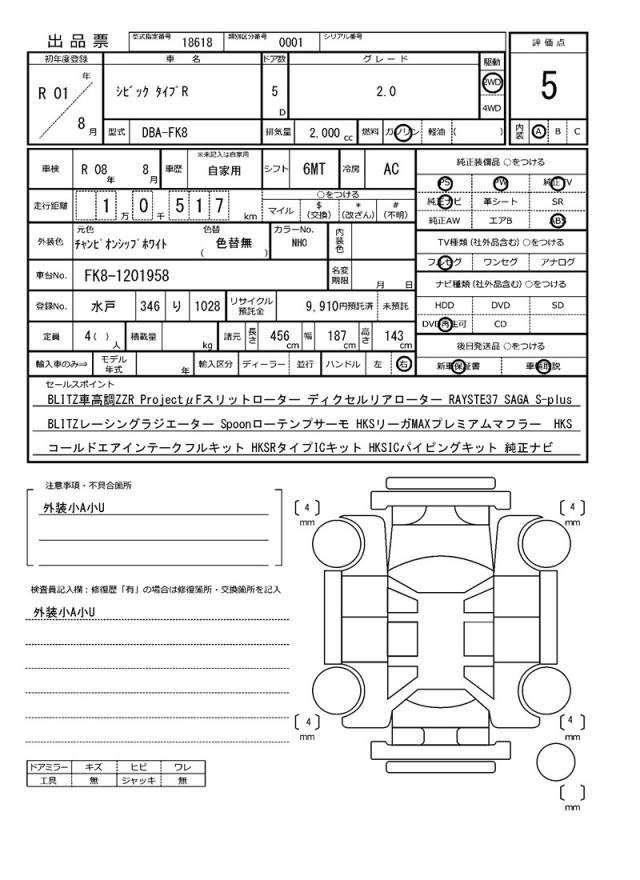 出品票 型式指定番号 18618 類別区分番号 0001 シリアル番号
初年度登録 車名 ドア数 グレード 駆動 評価点
R 01 年 シビック タイプR 5 D 2.0 2WD 4WD 5
8 月 型式 DBA-FK8 排気量 2,000 cc 燃料 ガソリン 軽油 ( ) 内装 A B C
車検 R 08 年 8 月 車歴 ※未記入は自家用 自家用 シフト 6MT 冷房 AC 純正装備品 ○をつける
PS PW 純正TV
走行距離 1 万 0 千 5 1 7 km ○をつける 純正ナビ 革シート SR
マイル $ (交換) * (改ざん) # (不明) 純正AW エアB ABS
外装色 元色 チャンピオンシップホワイト 色替 ( 色替無 ) カラーNo. NHO 内装色 TV種類 (社外品含む) ○をつける
フルセグ ワンセグ アナログ
車台No. FK8-1201958 名変期限 月 日 ナビ種類 (社外品含む) ○をつける
登録No. 水戸 346 り 1028 リサイクル預託金 9,910円預託済 未預託 HDD DVD SD
DVD再生可 CD
定員 4 ( ) 人 積載量 kg 諸元 長さ 456 cm 幅 187 cm 高さ 143 cm 後日発送品 ○をつける
輸入車のみ⇒ モデル年式 年 輸入区分 ディーラー 並行 ハンドル 左 右 新車保証書 車輌取説
セールスポイント
BLITZ車高調ZZR ProjectμFスリットローター ディクセルリアローター RAYSTE37 SAGA S-plus
BLITZレーシングラジエーター Spoonローテンプサーモ HKSリーガMAXプレミアムマフラー HKS
コールドエアインテークフルキット HKSRタイプICキット HKSICパイピングキット 純正ナビ
注意事項・不具合箇所
外装小A小U
検査員記入欄：修復歴「有」の場合は修復箇所・交換箇所を記入
外装小A小U
4 mm
4 mm
4 mm
4 mm
mm
ドアミラー キズ ヒビ ワレ
工具 無 ジャッキ 無